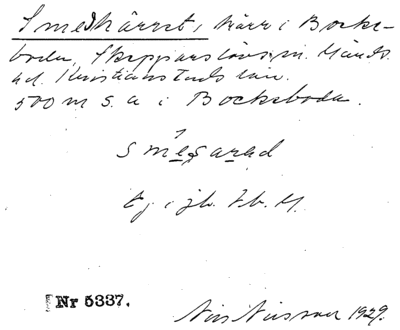 Smedkärret, kärr i Bocks-
boda, Skepparslövs sn. Gärds
hd. Kristianstads län.
500 m s. ö. i Bocksboda.
smesarad
ej i jb.
Nr 5337.
Nils Nilsson 1929.